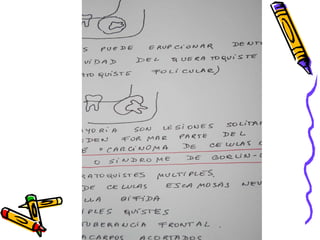 S PUEDE ERUPCIONAR DENT
UIDAD DEL QUERATOQUISTE
ATO QUISTE FOLICULAR)
AYORIA SON LESIONES SOLITA
DEN FORMAR PARTE DEL
E "CARCINOMA DE CELULAS
O SINDROME DE GORLIN-
RATOQUISTES MULTIPLES
DE CELULAS ESCAMOSAS NEV
LLA BIFIDA
IPLES QUISTES
TUBERANCIA FRONTAL.
ACARPOS ACORTADOS